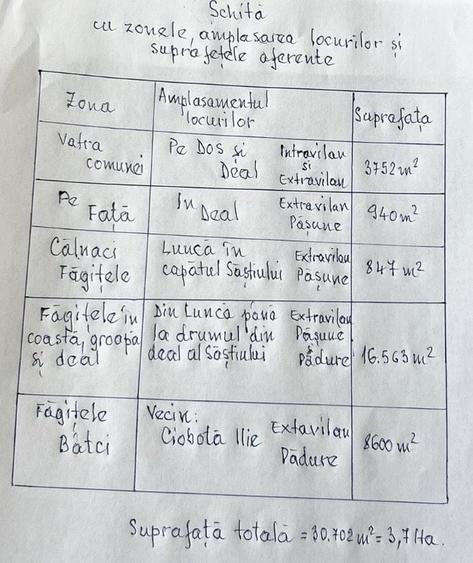 Schită
cu zonele, amplasarea locurilor și
suprafețele aferente
Zona
Amplasamentul
locurilor
Suprafața
Vatra
comunei
Pe Dos și
Deal
Intravilan
și
Extravilan
3752 m²
Pe
Față
În
Deal
Extravilan
Pășune
940 m²
Călnaci
Făgițele
Lunca în
capătul Săștiului
Extravilan
Pășune
847 m²
Făgițele în
coastă, groapă
și deal
Din Luncă până
la drumul din
deal al Săștiului
Extravilan
Pășune
și
Pădure
16.563 m²
Făgițele
Bătci
Vecin:
Ciobotă Ilie
Extavilan
Pădure
8600 m²
Suprafață totală = 30.702 m² = 3,7 Ha.